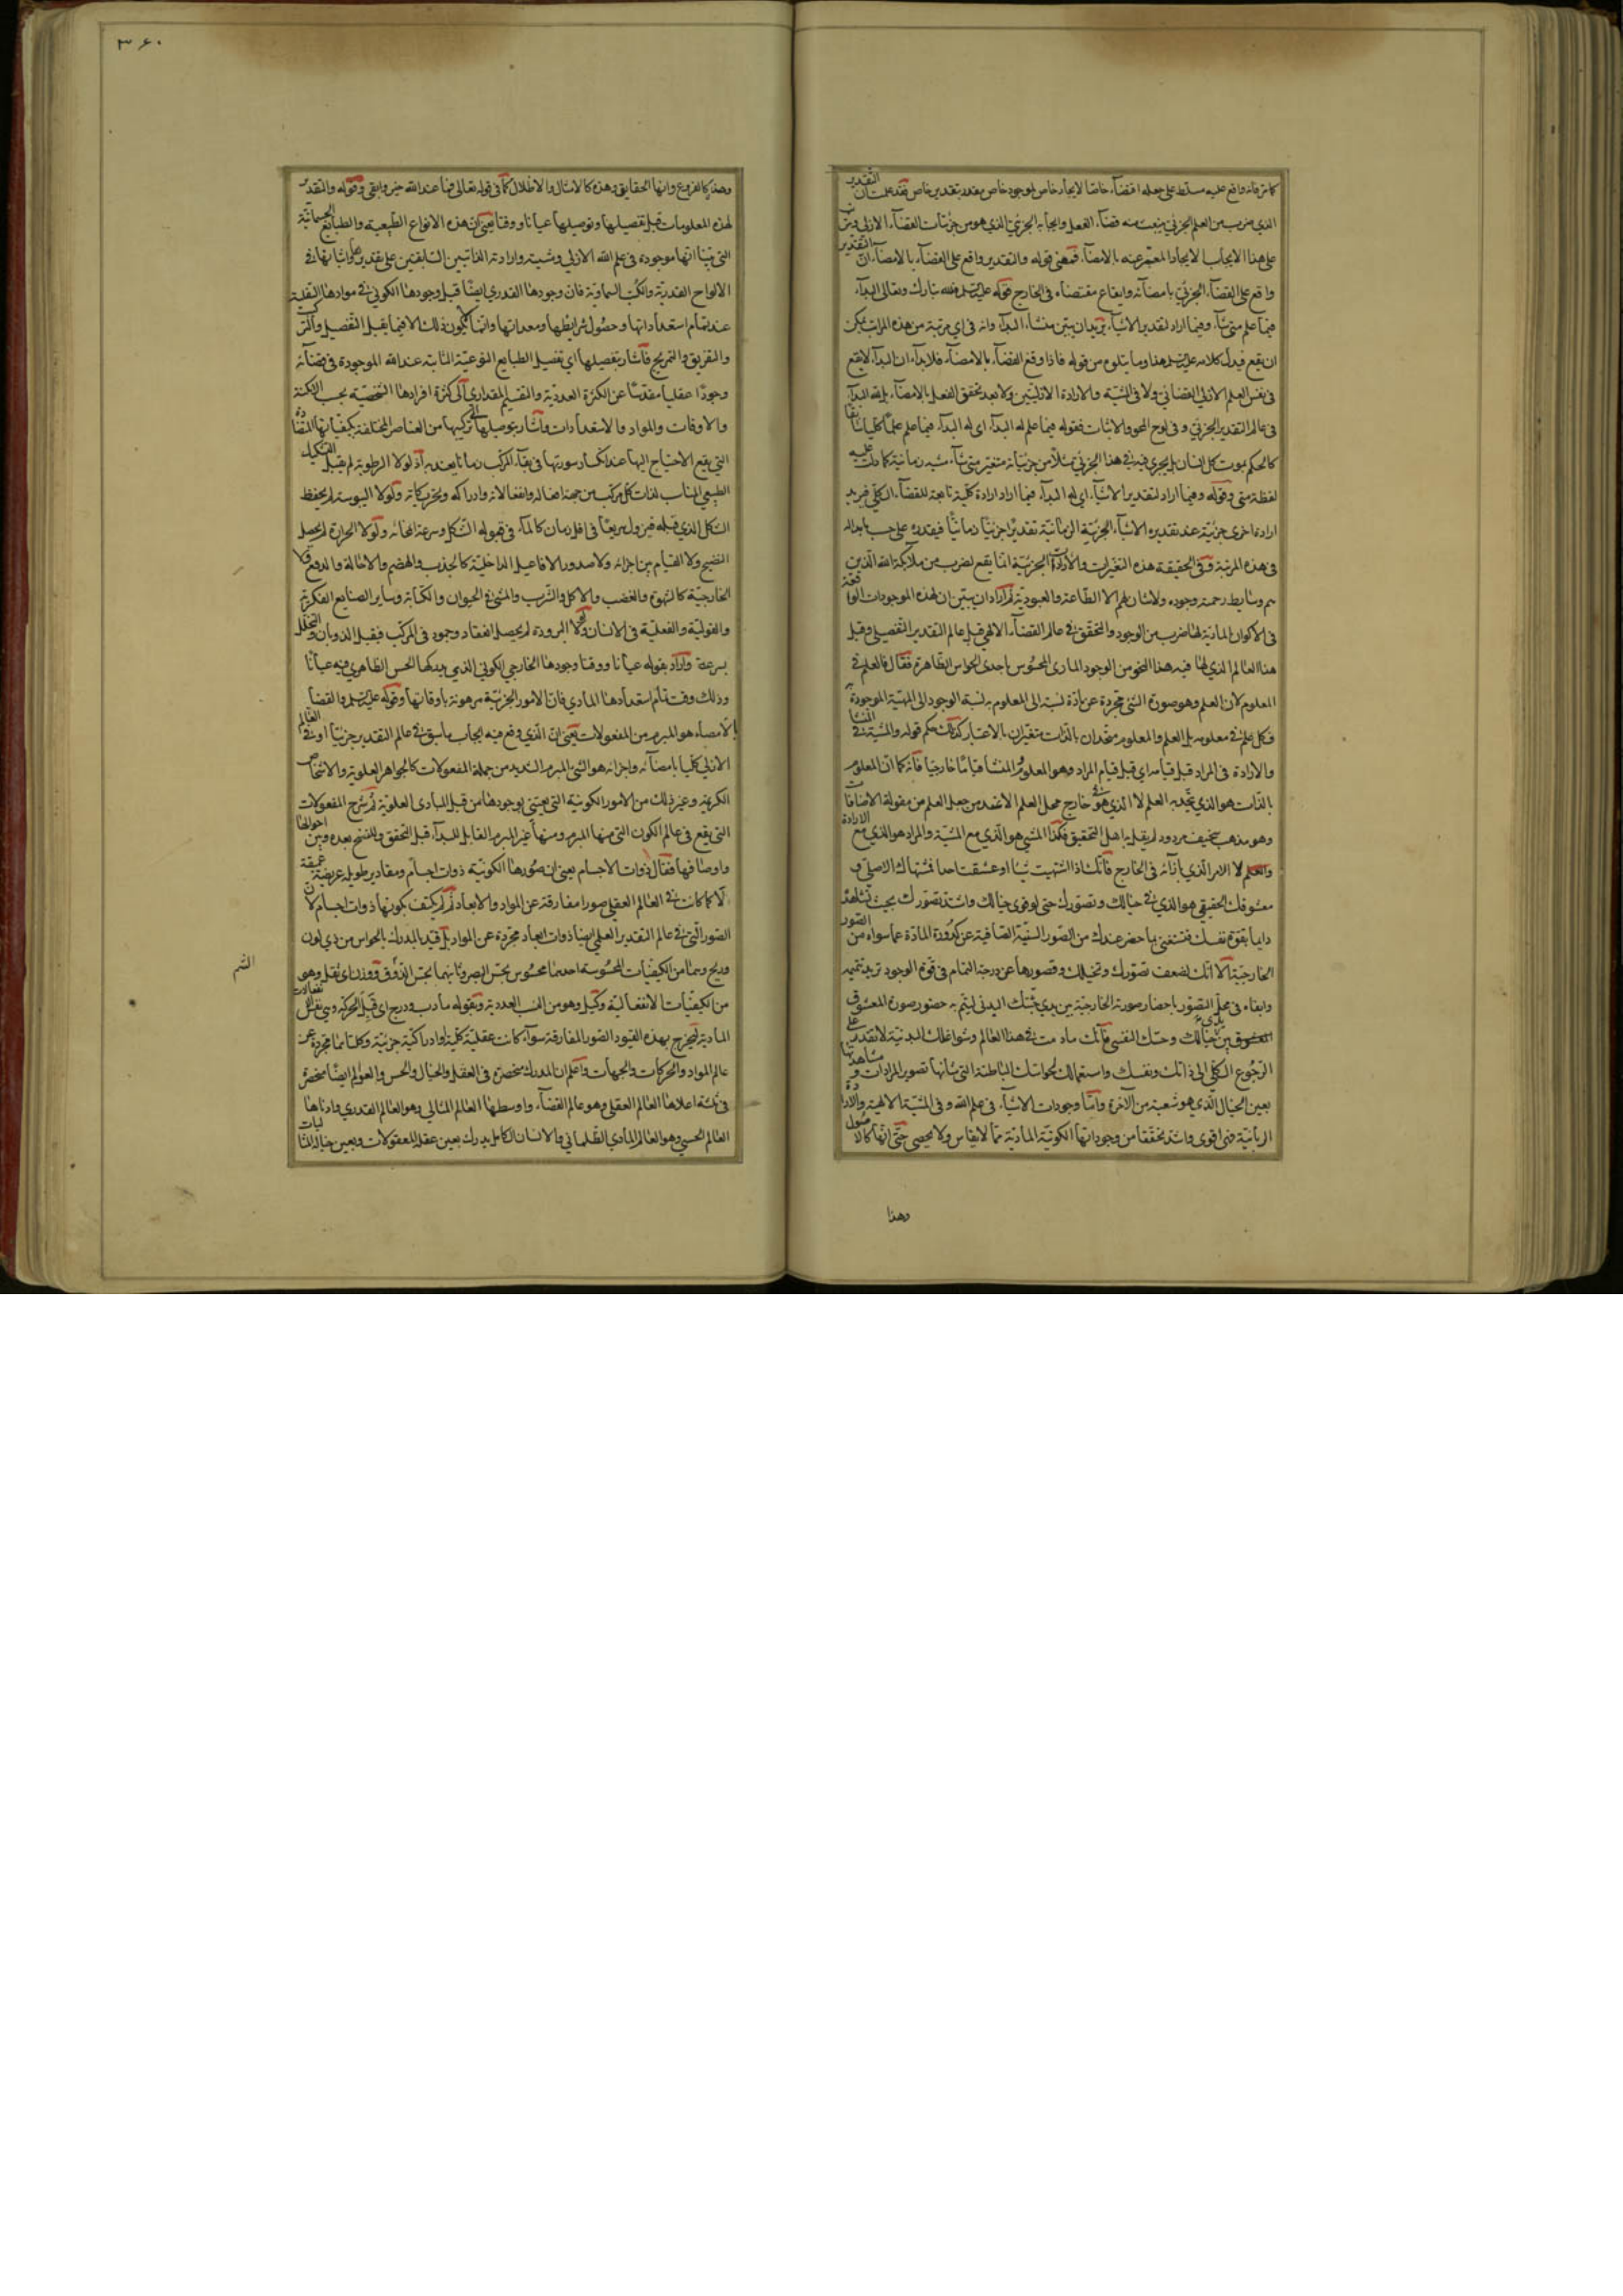 كما مر فانه واقع عليه مسلط على جعله اقتضاء خاصا لايجاد خاص لموجود خاص بقدر بتقدير خاص فقد علمت ان التقدير
الذي ضرب من العلم الجزئي ينبعث منه قضاء الفعل وايجابه الجزئي الذي هو من جزئيات القضاء الازلي وترتب
على هذا الايجاب الايجاد المعبر عنه بالامضاء فمعنى قوله والتقدير واقع على القضاء بالامضاء ان التقدير
واقع على القضاء الجزئي بامضائه وايقاع مقتضاه في الخارج قوله عليه السلم فلله تبارك وتعالى البداء
فيما علم متى شاء وفيما اراد لتقدير الاشياء يريد ان يبين منشاء البداء وانه في اي مرتبة من هذه المراتب يمكن
ان يقع فيدل كلامه عليه السلم هذا وما يتلوه من قوله فاذا وقع القضاء بالامضاء فلا بداء ان البداء لا يقع
في نفس العلم الازلي القضائي ولا في المشية والارادة الازليتين ولا بعد تحقق الفعل بالامضاء بل لله البداء
في عالم التقدير الجزئي وفي لوح المحو والاثبات فقوله فيما علم له البداء اى له البداء فيما علم علما كليا سابقا
كالحكم بموت كل انسان بل يجرى فيه في هذا الجزئي مثلا من جزئياته متغير متى شاء مشية زمانية كما دلت عليه
لفظة متى وقوله وفيما اراد لتقدير الاشياء اي له البداء فيما اراد ارادة كلية تابعة للقضاء الكلي فيريد
ارادة اخرى جزئية عند تقديره الاشياء الجزئية الزمانية تقديرا جزئيا زمانيا فيقدره على حسب ما بدا له
في هذه المرتبة وفي الحقيقة هذه التغيرات والارادات الجزئية انما يقع لضرب من ملائكة الله الذين
هم وسايط رحمته وجوده ولا شان لهم الا الطاعة والعبودية ثم اراد ان يبين ان لهذه الموجودات الواقعة
في الاكوان المادية لها ضرب من الوجود والتحقق في عالم القضاء الالهي قبل عالم التقدير التفصيلي وقبل
هذا العالم الذي لها فيه هذا النحو من الوجود المادى المحسوس باحدى الحواس الظاهرة فقال فالعلم في
المعلوم لان العلم وهو صورة الشئ مجردة عن مادة نسبته الى المعلوم به نسبة الوجود الى المهية الموجودة به
فكل علم في معلومه بل العلم والمعلوم متحدان بالذات متغيران بالاعتبار كذلك حكم قوله والمشية في المنشا
والارادة في المراد قبل قيامه اى قبل قيام المراد وهو المعلوم المنشا قياما خارجيا فانه كما ان المعلوم
بالذات هو الذي يتحد به العلم لا الذي هو شئ خارج محل العلم الا عند من جعل العلم من مقولة الاضافات
وهو مذهب سخيف مردود لم يقبله اهل التحقيق فكذا المشيئ هو الذي مع المشية والمراد هو الذي مع الارادة
والعلم لا الامر الذي بازائه في الخارج فانك اذا اشتهيت شيئا او عشقت احدا فمشتهاك الاصلي و
معشوقك الحقيقي هو الذي في خيالك وتصورك حتى لو قوى خيالك واشتد تصورك بحيث تشاهد
دايما بقوة نفسك فتستغني بما حضر عندك من الصور السنية الصافية عن كدورة المادة عما سواه من الصور
الخارجية الا انك لضعف تصورك وتخيلك وقصورها عن درجة التمام في قوة الوجود تريد تتميمه
وابقاءه في محل التصور باحضار صورته الخارجية بين يدي حسك البدني ليتم به حضور صورة المعشوق
بين يدي خيالك وحسك النفسي فانك ما دمت في هذا العالم وشواغلك البدنية لا تقدر على
الرجوع الكلي الى ذاتك ونفسك واستعمالك لحواسك الباطنة التي شانها تصوير المرادات ومشاهدتها
بعين الخيال الذي هو شعبة من الآخرة واما وجودات الاشياء في علم الله وفي المشية الالهية والارادة
الربانية فهى اقوى واشد تحققا من وجوداتها الكونية المادية مما لا يقاس ولا يحصى حتى انها كالاصول
وهذا
٣٦٠
وهذه كالفروع وانها الحقايق وهذه كالامثال والاظلال كما في قوله تعالى وما عند الله خير وابقى وقوله والتقدير
لهذه المعلومات قبل تفصيلها وتوصيلها عيانا ووقتا يعنى ان هذه الانواع الطبيعية والطبايع الجسمانية
التي بينا انها موجودة في علم الله الازلي ومشيته وارادته الذاتيين السابقتين على تقديرها واثباتها في
الالواح القدرية والكتب السماوية فان وجودها القدري ايضا قبل وجودها الكوني في موادها السفلية
عند تمام استعداداتها وحصول شرايطها ومعداتها وانما يكون ذلك الا فيما يقبل التفصيل والتركيب
والتفريق والتمزيج فاشار بتفصيلها اي تفصيل الطبايع النوعية الثابتة عند الله الموجودة في قضائه
وجودا عقليا مقدسا عن الكثرة العددية والتقسيم المقداري الى كثرة افرادها الشخصية بحسب الامكنة
والاوقات والمواد والاستعدادات واشار بتوصيلها الى تركيبها من العناصر المختلفة بكيفياتها المتضادة
التي يقع الاحتياج اليها عند انكسار سورتها في بقاء المركب زمانا يعتد به اذ لولا الرطوبة لم يقبل التشكيل
الطبيعي المناسب لذات كل مركب من جهة افعاله وانفعالاته وادراكه وتحريكاته ولولا اليبوسة لم يحفظ
الشكل الذي قبله فيزول سريعا في اقل زمان كالماء في قبوله التشكل وسرعة امحائه ولولا الحرارة لم يحصل
النضج ولا القيام بين اجزائه ولا صدور الافاعيل الداخلية كالجذب والهضم والاحالة والدفع ولا
الخارجية كالشهوة والغضب والاكل والشرب والمشي في الحيوان والكتابة وساير الصنايع الفكرية
والقولية والفعلية في الانسان ولولا البرودة لم يحصل انعقاد وجمود في المركب فيقبل الذوبان والتحلل
بسرعة واراد بقوله عيانا ووقتا وجودها الخارجي الكوني الذي يدركها الحس الظاهري فيه عيانا
وذلك وقت تمام استعدادها المادي فان الامور الجزئية مرهونة باوقاتها وقوله عليه السلم والقضا
بالامضاء هو المبرم من المفعولات يعنى ان الذي وقع فيه ايجاب ما سبق في عالم التقدير جزئيا او في العالم
الازلي كليا بامضائه واجرائه هو الشئ المبرم الشديد من جملة المفعولات كالجواهر العلوية والاشخاص
الكريمة وغير ذلك من الامور الكونية التي يعتني بوجودها من قبل المبادى العلوية ثم شرح المفعولات
التي يقع في عالم الكون التي منها المبرم ومنها غير المبرم القابل للبداء قبل التحقق وللنسخ بعده وبين احوالها
واوصافها فقال ذوات الاجسام يعنى ان صورها الكونية ذوات اجسام ومقادير طويلة عريضة عميقة
لا كما كانت في العالم العقلي صورا مفارقة عن المواد والابعاد ثم لم يكتف بكونها ذوات اجسام لان
الصور التي في عالم التقدير العلمي ايضا ذوات ابعاد مجردة عن المواد بل قيد بالمدرك بالحواس من ذي لون
وريح وهما من الكيفيات المحسوسة احدهما محسوس بحس البصر وثانيهما بحس الذوق ووزن اى ثقل وهو
الشم
من الكيفيات الانفعالية وكيل وهو من النسب العددية وبقوله ما دب ودرج اى قبل الحركة وهي نفس انفعالات
المادية ليخرج بهذه القيود الصور المفارقة سواء كانت عقلية كلية او ادراكية جزئية وكلتاهما مجردة عن
عالم المواد والحركات والجهات واعلم ان المدرك منحصرة في العقل والخيال والحس والعوالم ايضا منحصرة
في ثلثة اعلاها العالم العقلي وهو عالم القضاء واوسطها العالم المثالي وهو العالم القدري وادناها
العالم الحسي وهو العالم المادي الظلماني والانسان الكامل يدرك بعين عقله المعقولات وبعين خياله المثاليات